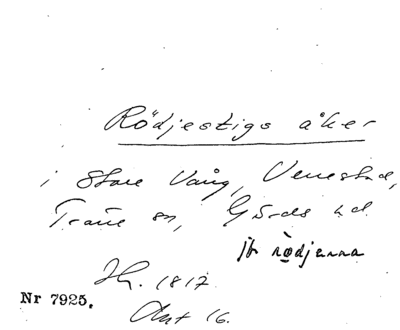 Rödjestigs åker
i Store Vång, Venestad,
Träne sn, Gärds hd.
jfr rödjanna
Nr 7925.
1817
Akt 16.